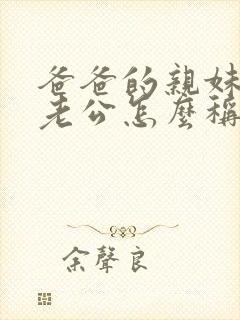 爸爸的親妹
老公怎麼稱
余聲良